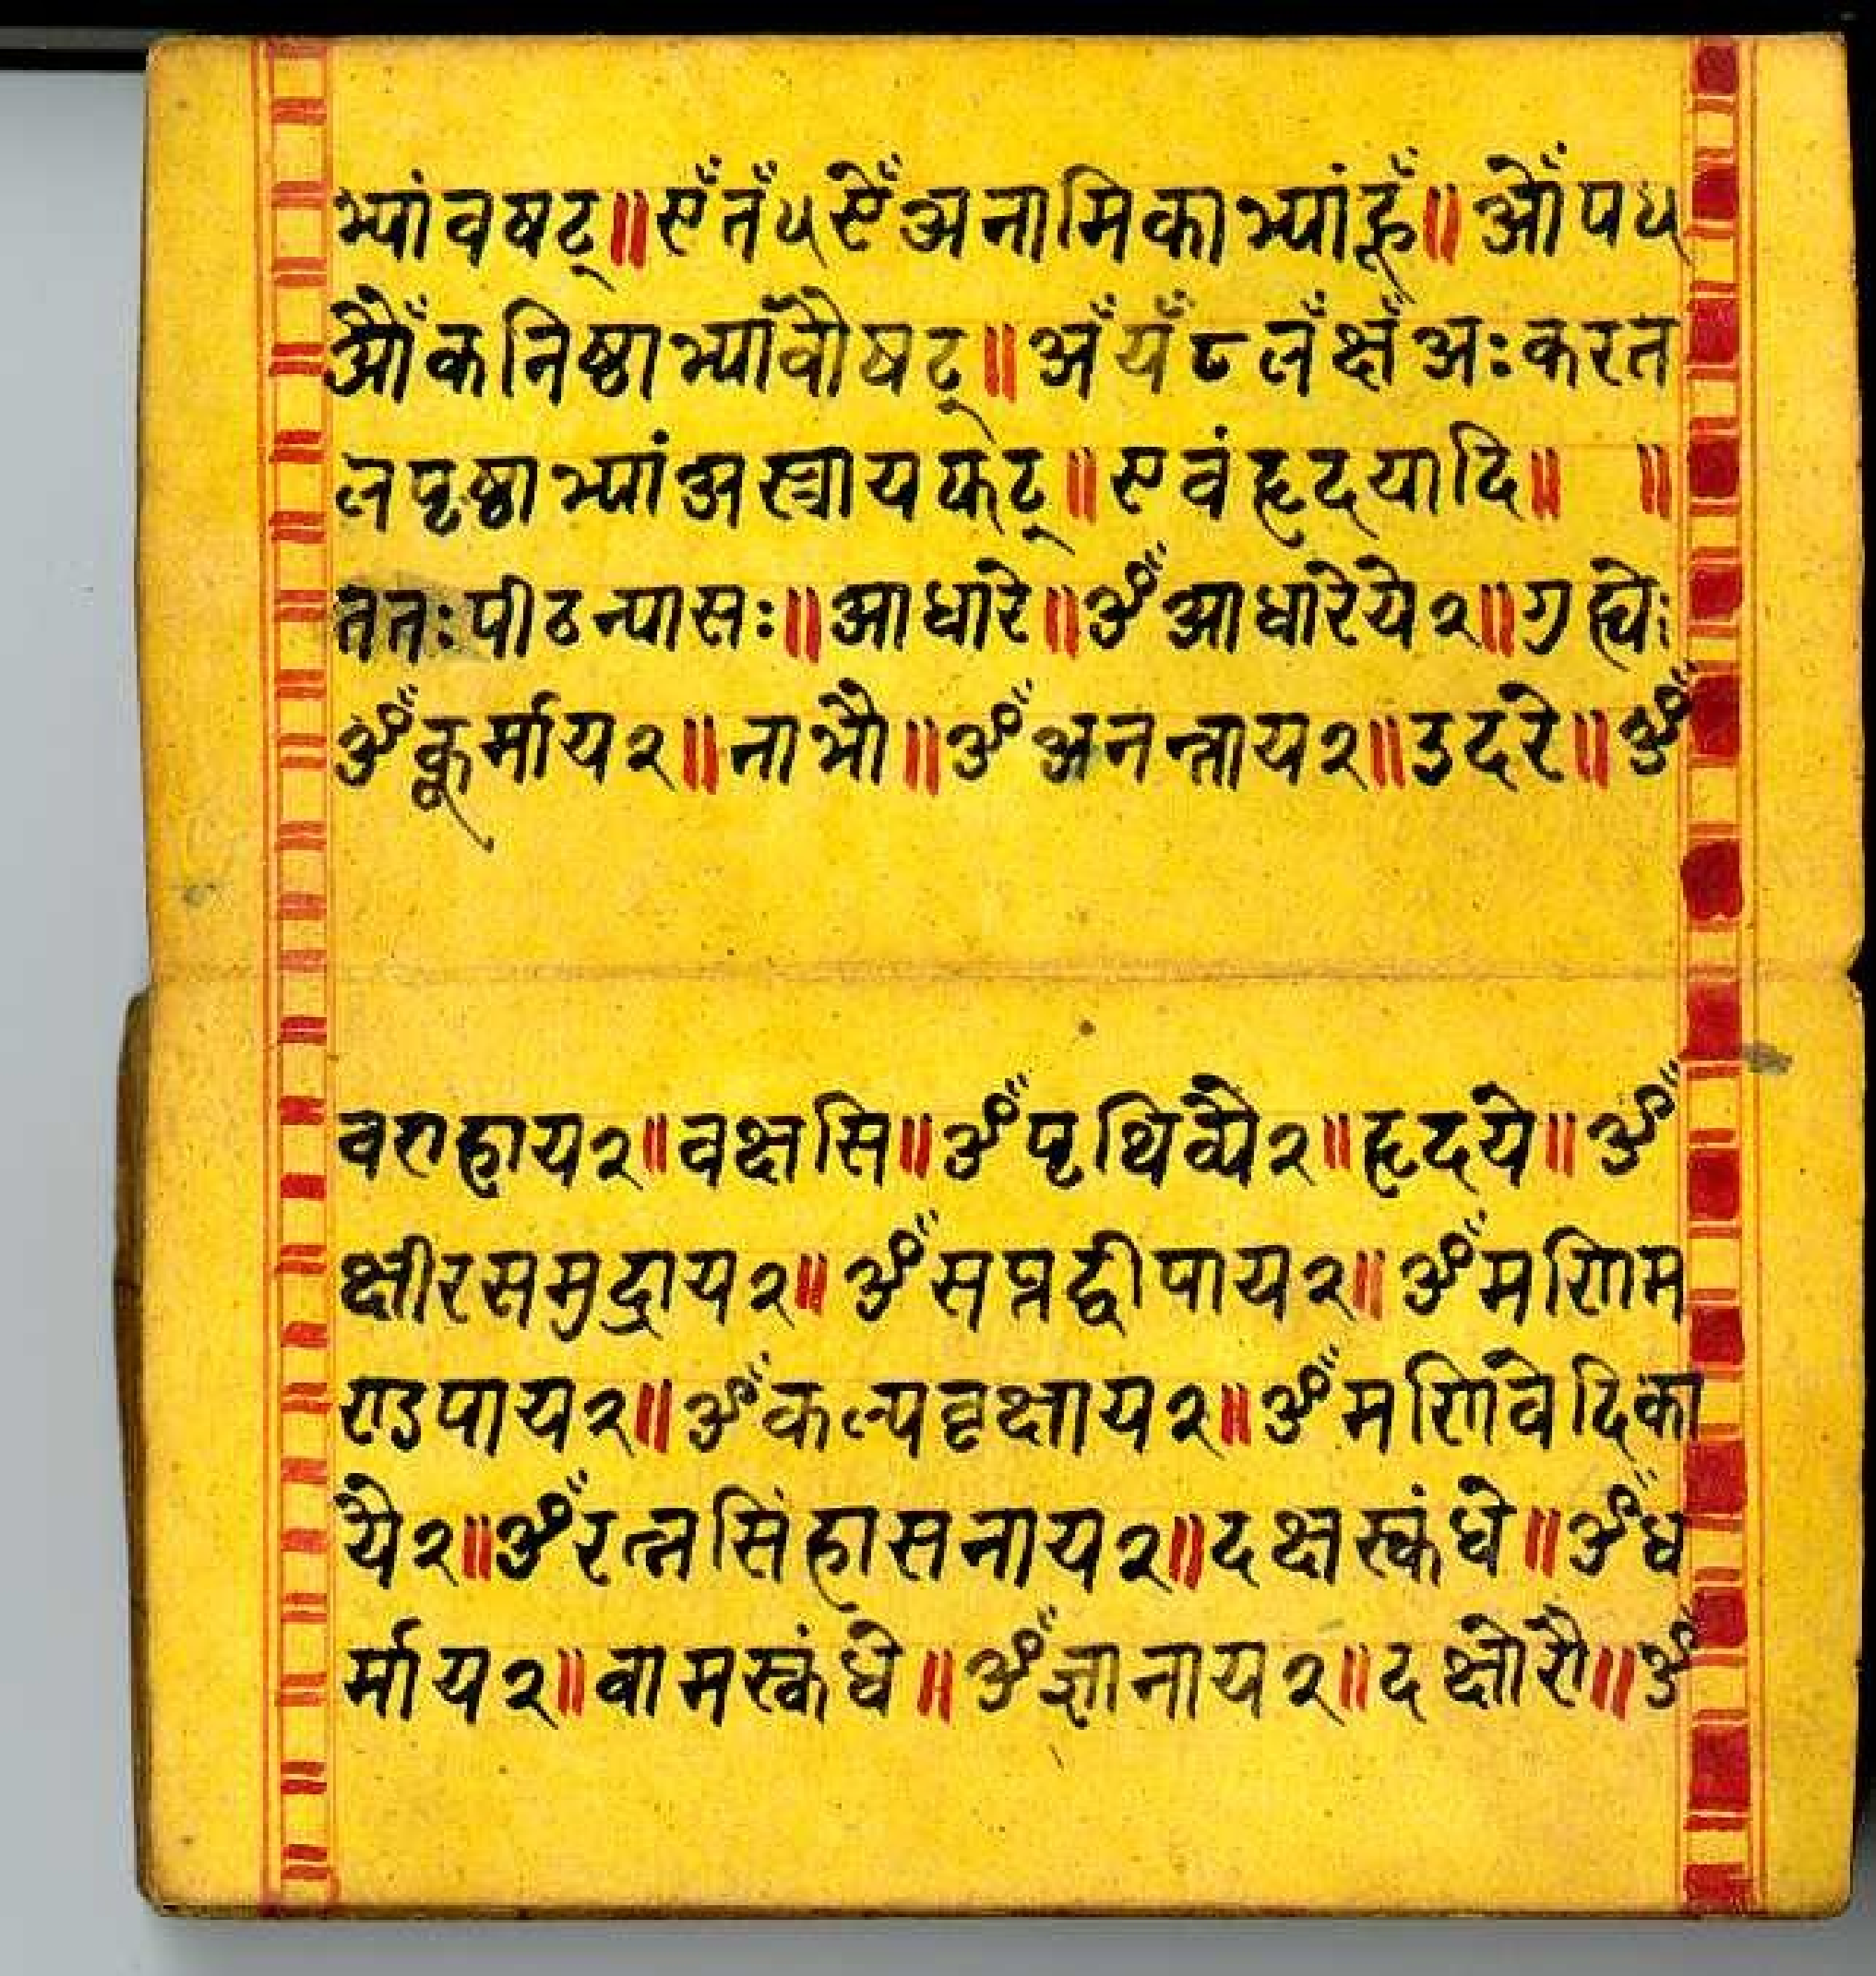 भ्यांवषट्॥एँतँ५ऐँअनामिकाभ्यांहूँ॥ओँप५
औँकनिष्ठाभ्यांवौषट्॥अँयँ८लँक्षँअःकरत
लपृष्ठाभ्यांअस्त्रायफट्॥एवंहृदयादि॥ ॥
ततःपीठन्यासः॥आधारे॥ॐआधारेये२॥ग्रह्येः
ॐकूर्माय२॥नाभौ॥ॐअनन्ताय२॥उदरे॥ॐ
वराहाय२॥वक्षसि॥ॐपृथिव्यै२॥हृदये॥ॐ
क्षीरसमुद्राय२॥ॐसप्तद्वीपाय२॥ॐमणिम
ण्डपाय२॥ॐकल्पवृक्षाय२॥ॐमणिवेदिका
यै२॥ॐरत्नसिंहासनाय२॥दक्षस्कंधे॥ॐध
र्माय२॥वामस्कंधे॥ॐज्ञानाय२॥दक्षोरौ॥ॐ